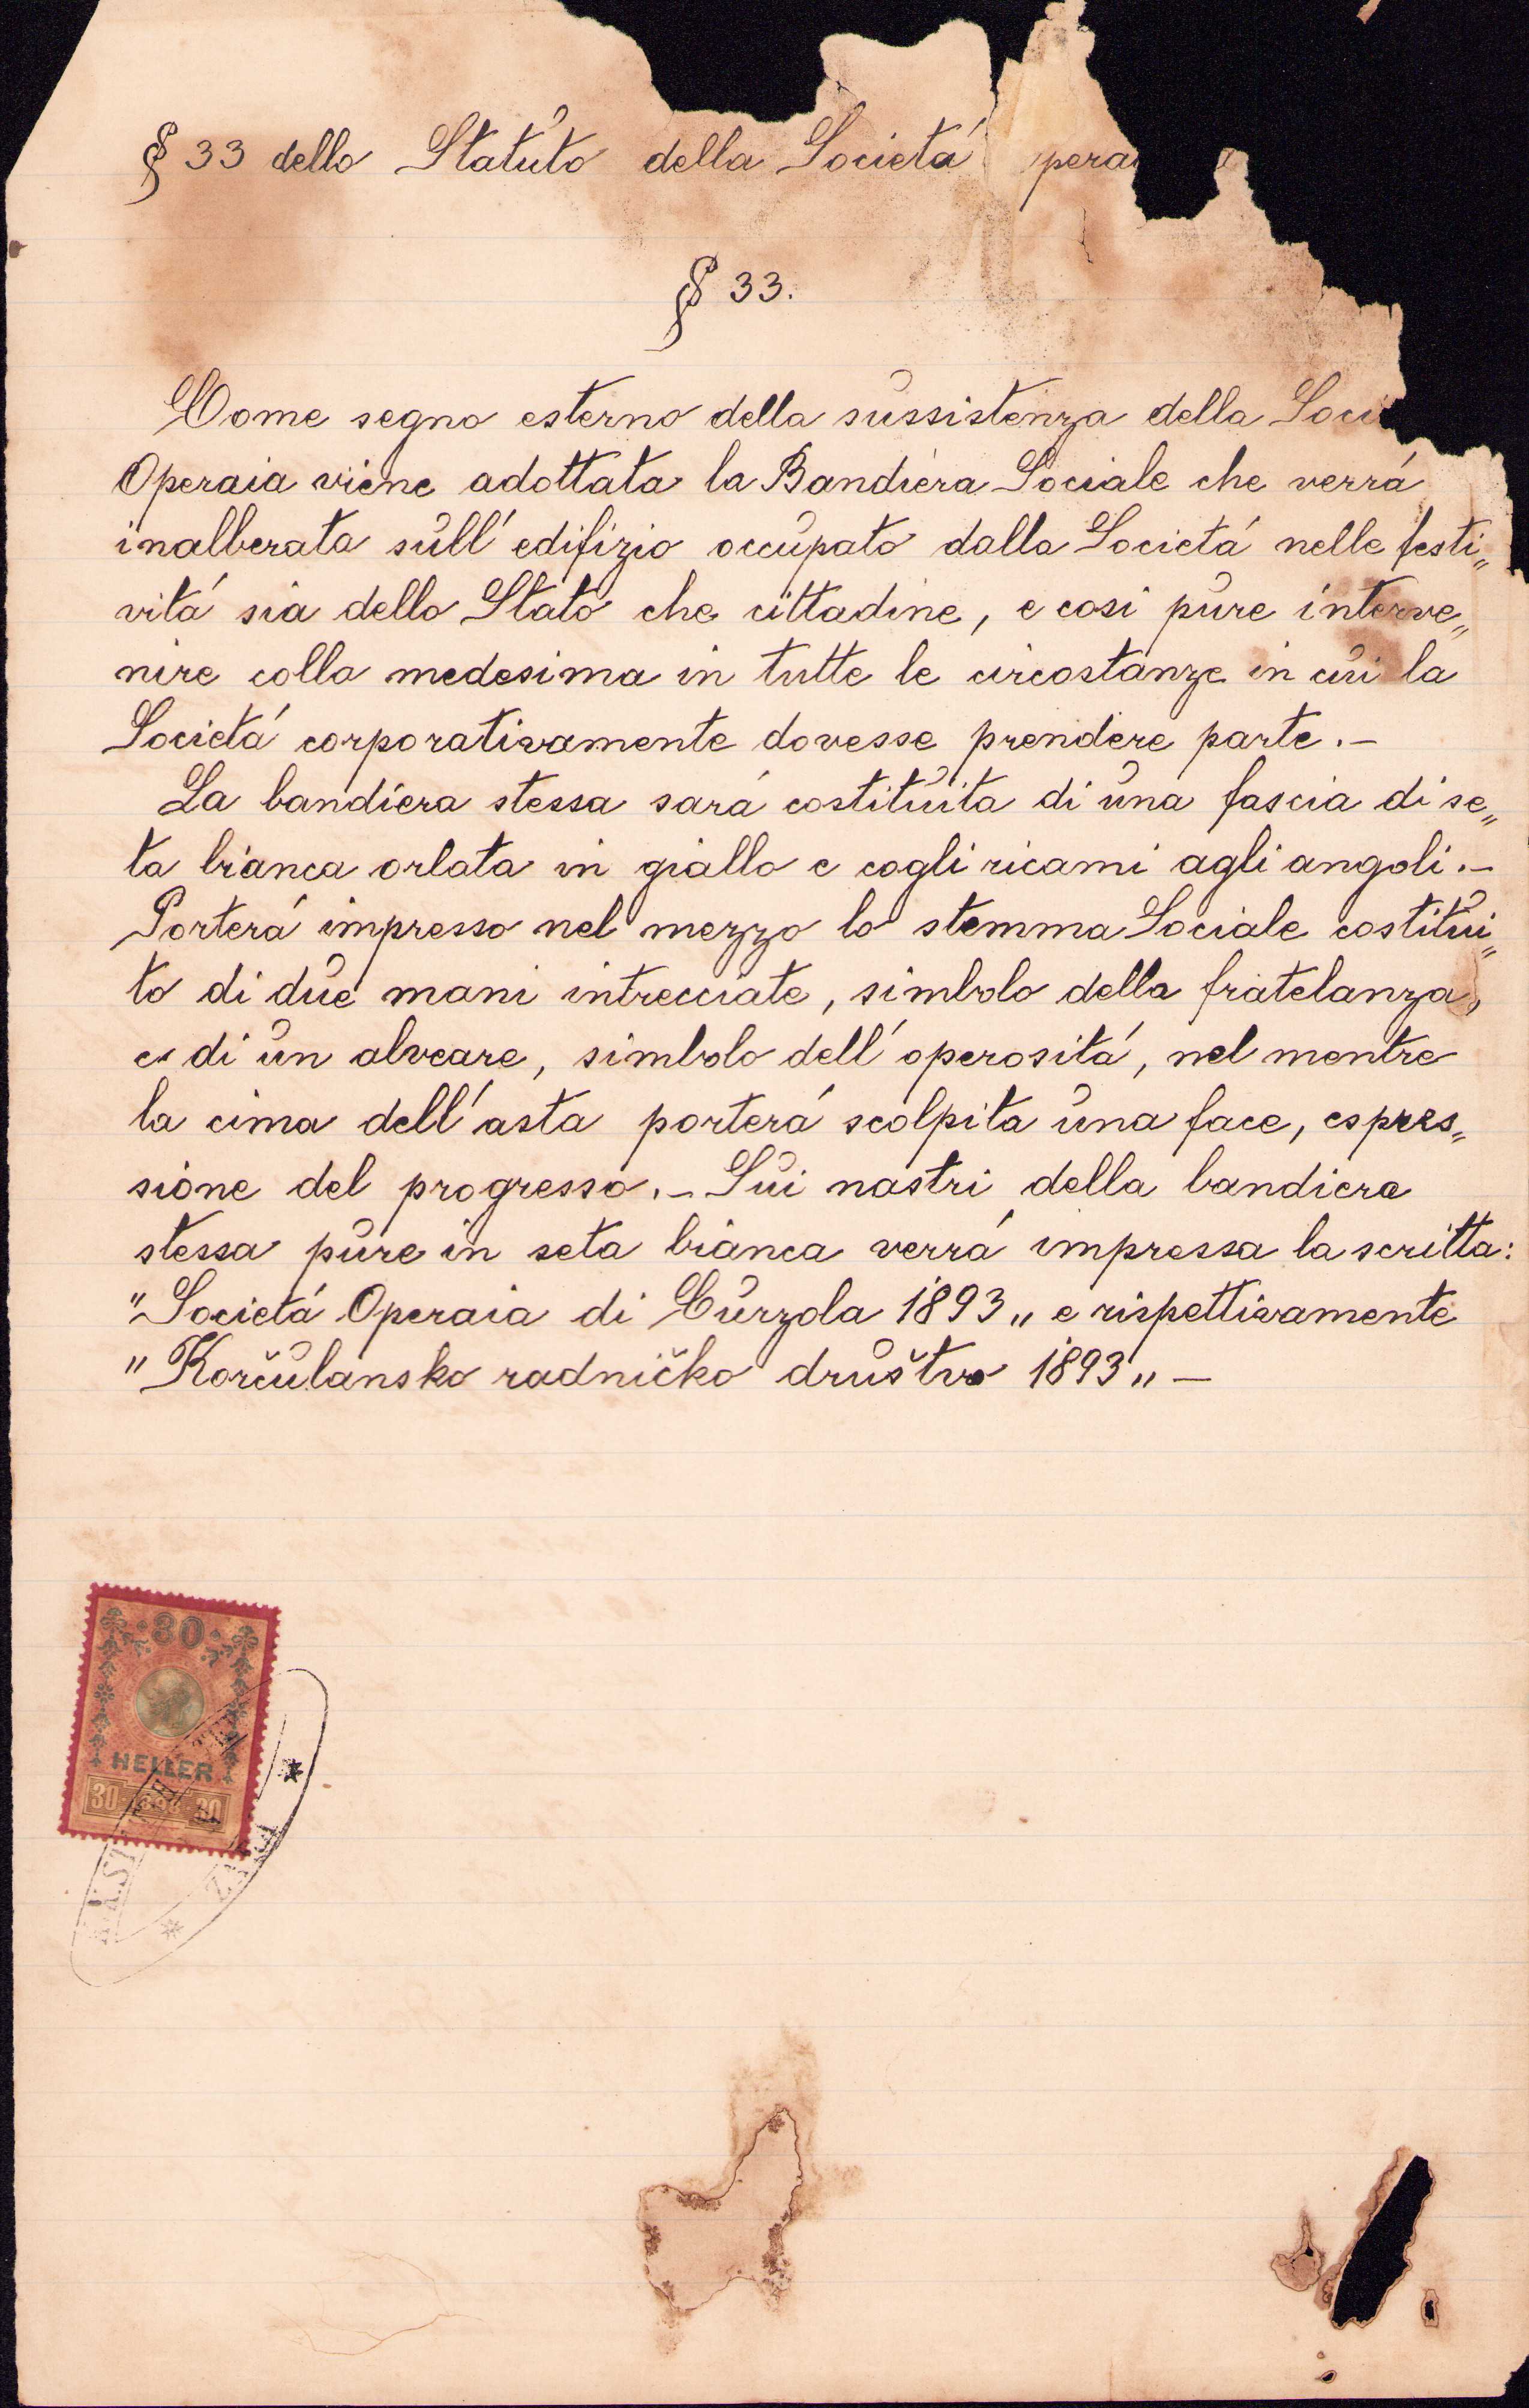 § 33 dello Statuto della Societá pera
§ 33.
Come segno esterno della sussistenza della Soci
Operaia viene adottata la Bandiera Sociale che verrá
inalberata sull' edifizio occupato dalla Societá nelle festi„
vitá sia dello Stato che cittadine, e cosi pure interve„
nire colla medesima in tutte le circostanze in cui la
Societá corporativamente dovesse prendere parte.–
La bandiera stessa sará costituita di una fascia di se„
ta bianca orlata in giallo e cogli ricami agli angoli.–
Porterá impresso nel mezzo lo stemma Sociale costitui„
to di due mani intrecciate, simbolo della fratelanza,
e di un alveare, simbolo dell' operositá, nel mentre
la cima dell' asta porterá scolpita una face, espres„
sione del progresso.– Sui nastri della bandiera
stessa pure in seta bianca verrá impressa la scritta:
"Societá Operaia di Curzola 1893„ e rispettivamente
"Korčulansko radničko društvo 1893„ –
30
HELLER
30 1898 30